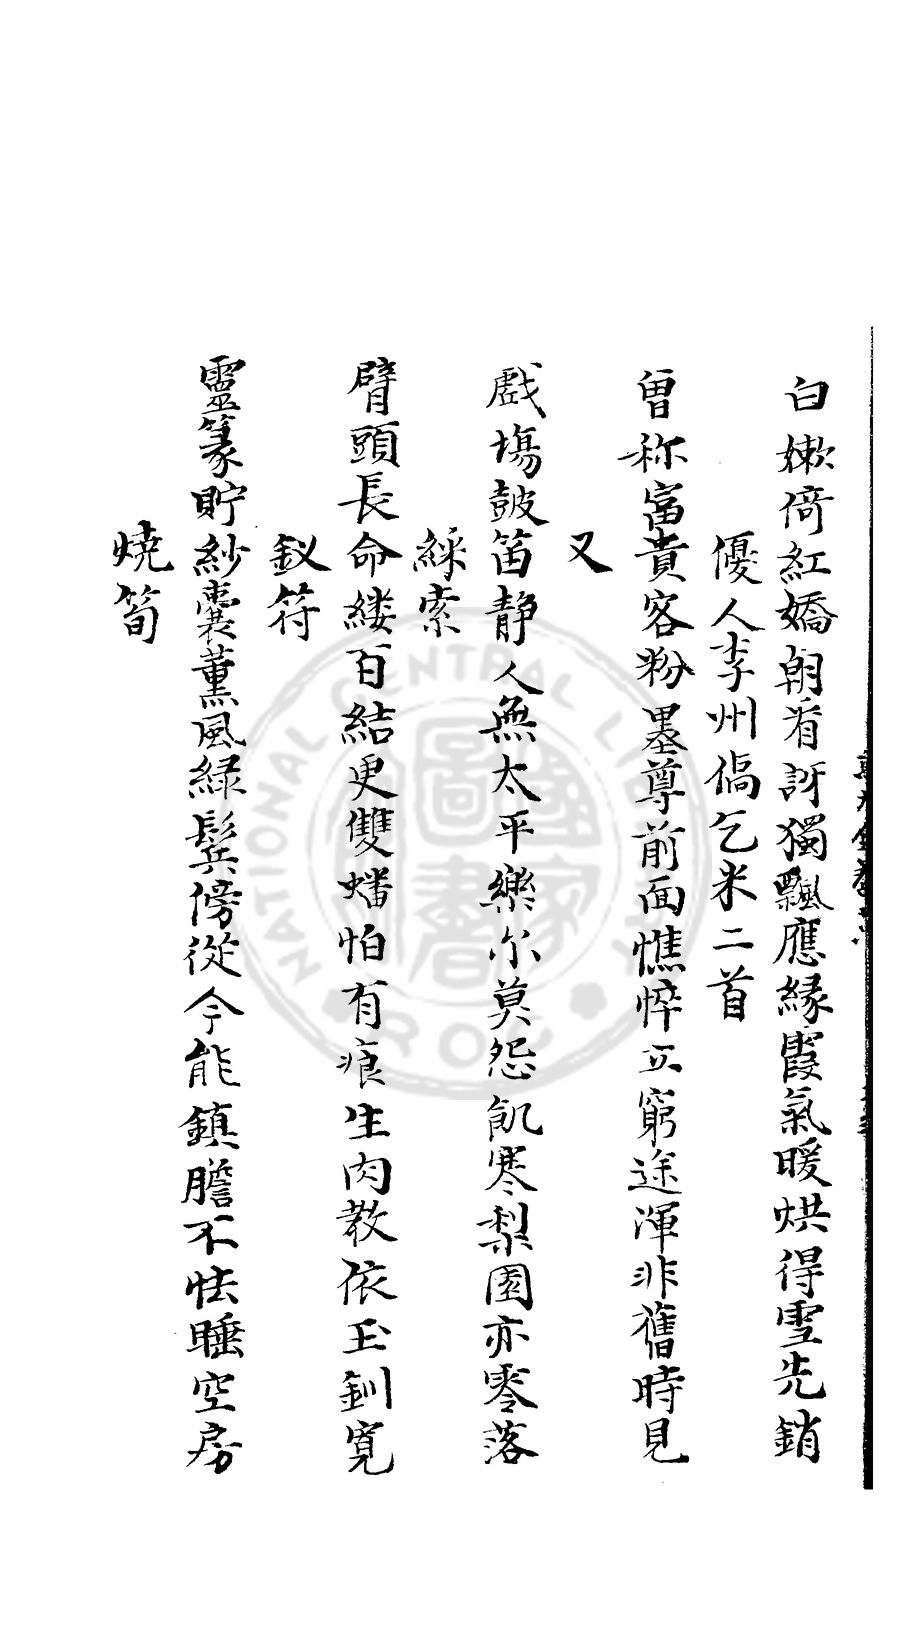 白嫰倚紅嬌朝看訝獨飄應緣霞氣暖烘得雪先銷
優人李州僑乞米二首
曽称富貴客粉墨尊前面憔悴立窮途渾非舊時見
又
戲塲鼓笛静人無太平樂尔莫怨飢寒梨園亦零落
綵索
臂頭長命縷百結更雙蟠怕有痕生肉教依玉釧寬
釵符
靈篆貯紗囊薰風緑鬂傍從今能鎮膽不怯睡空房
燒筍
NATIONAL CENTRAL LIBRARY
ROC
國家圖書